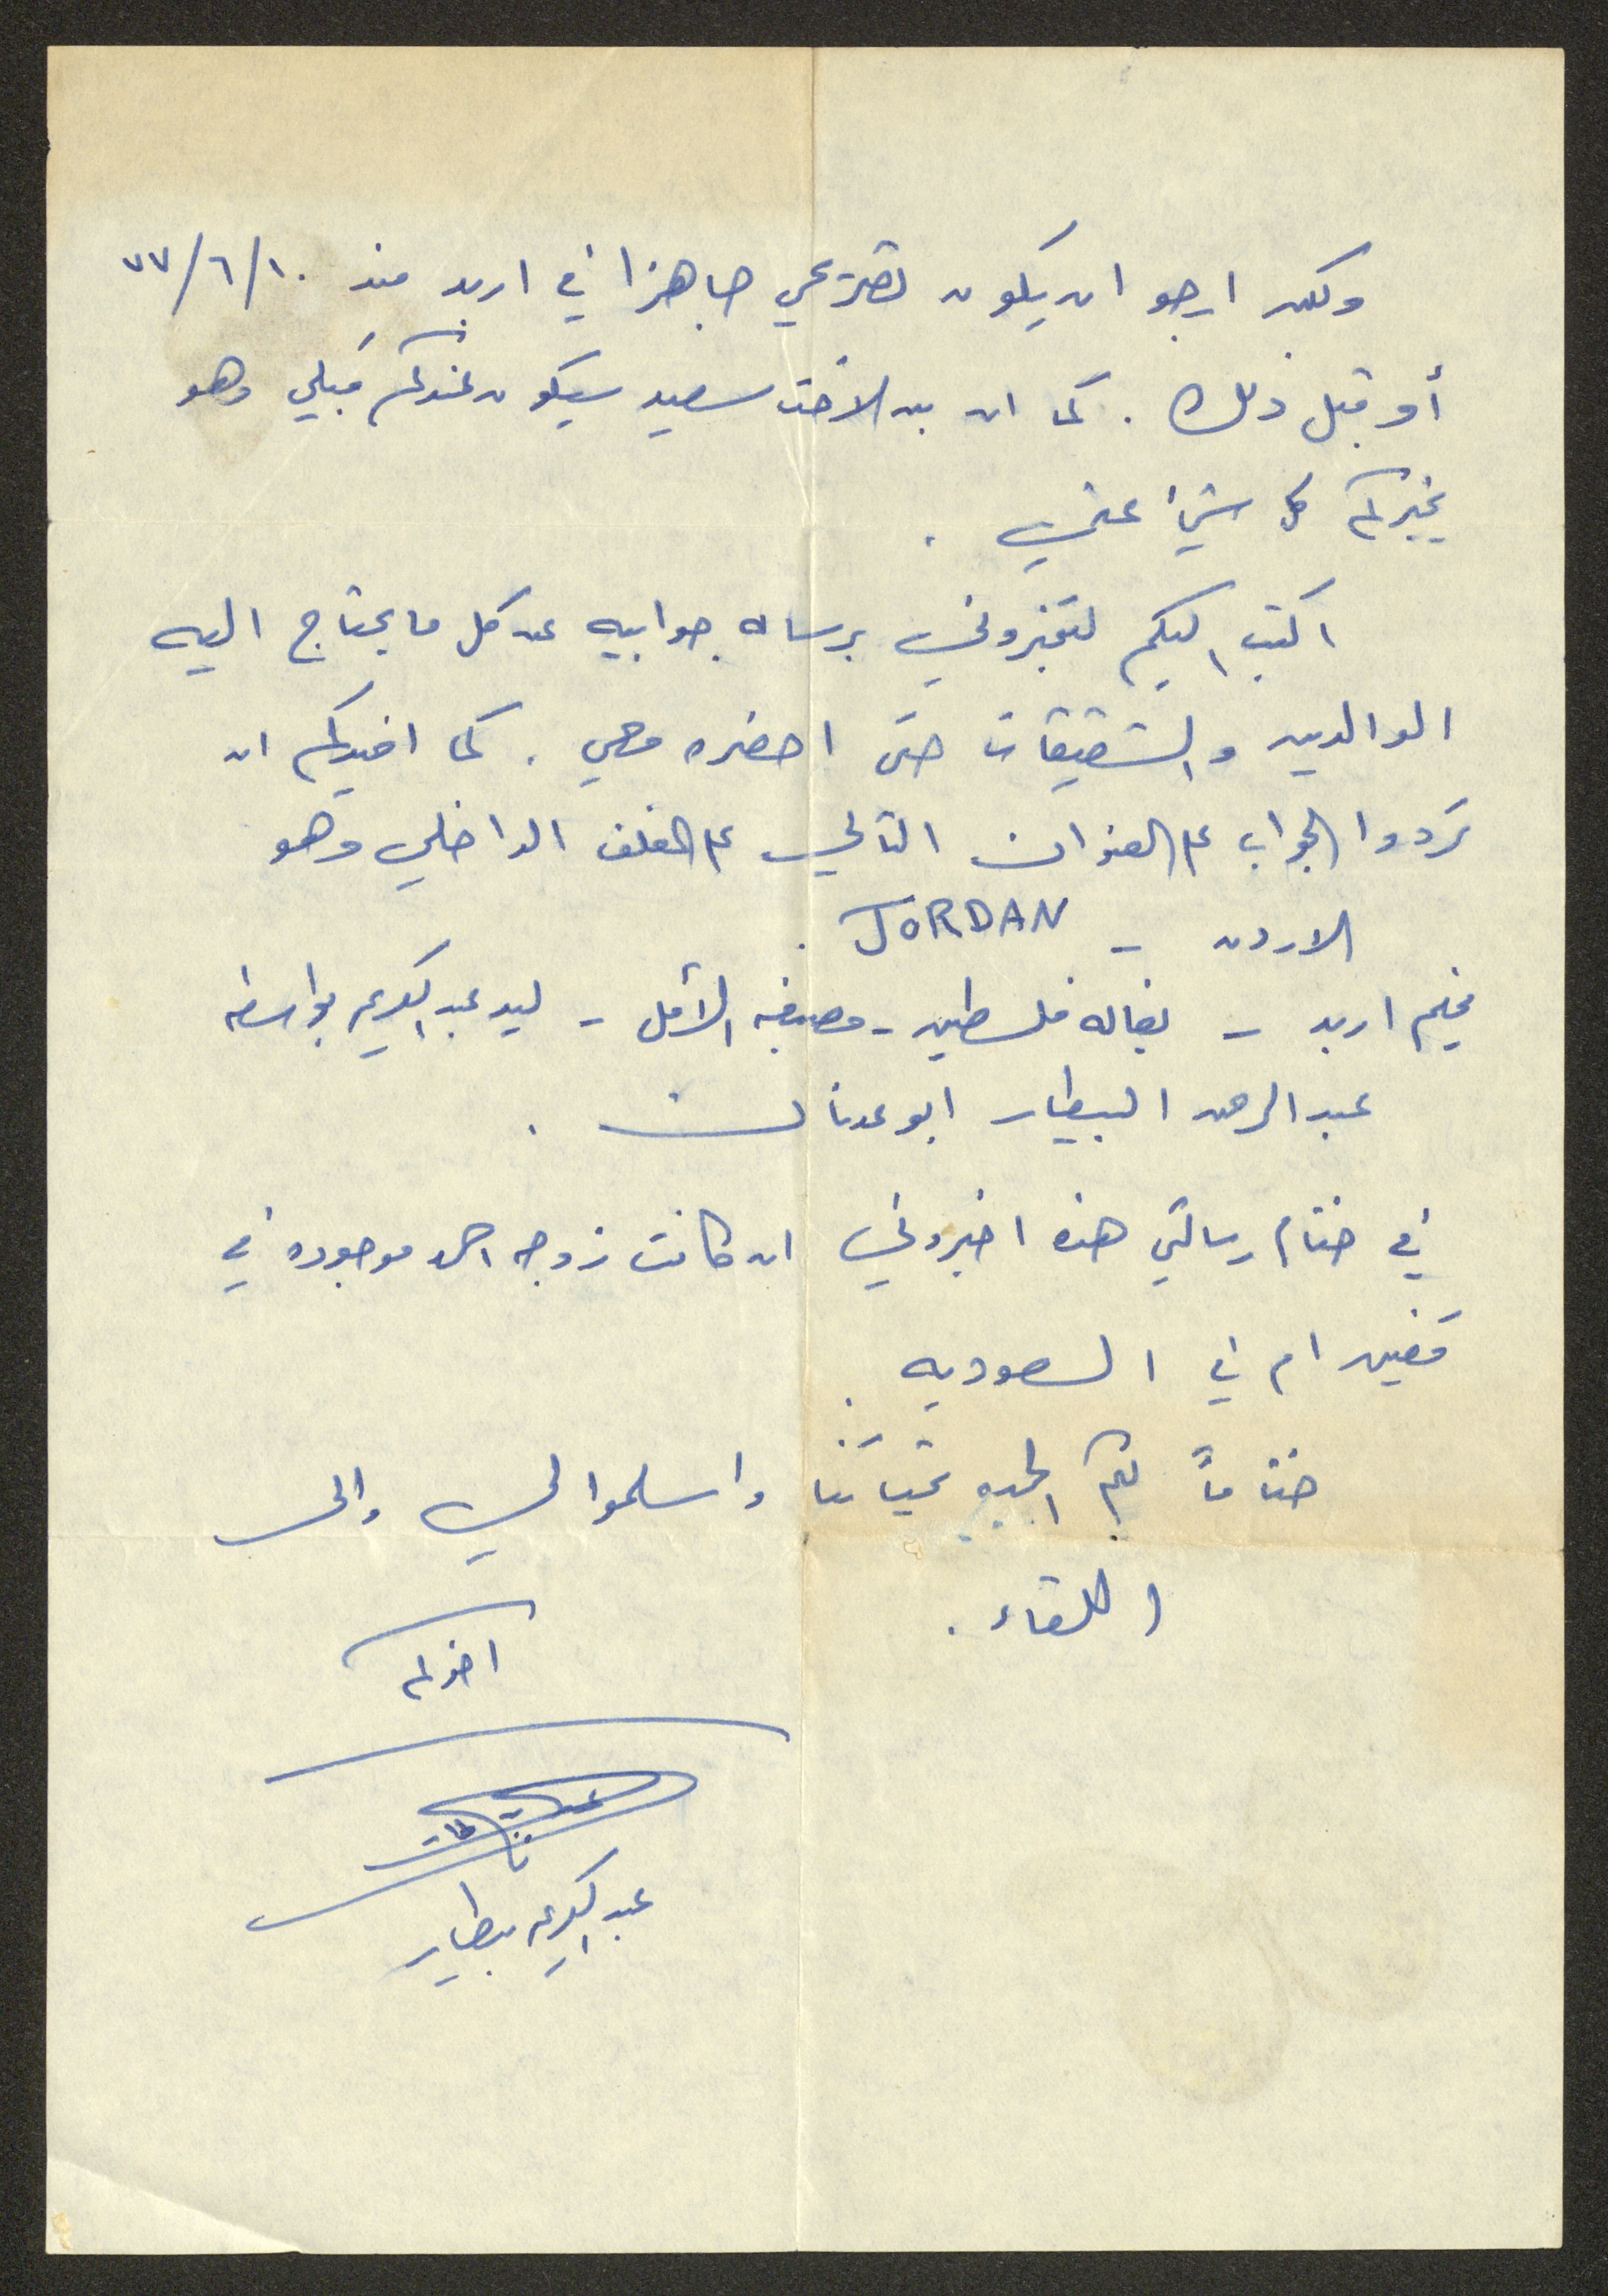 ولكن ارجو ان يكون تصريحي جاهزا في اربد منذ ١٠/٦/٧٧
أو قبل ذلك . كما ان بن الاخت سعيد سيكون عندكم قبلي وهو
يخبركم كل شيئ عني .
اكتب اليكم لتخبروني برساله جوابيه عن كل ما يحتاج اليه
الوالدين والشقيقات حتى احضره معي . كما افيدكم ان
تردوا الجواب على العنوان التالي على المغلف الداخلي وهو
الاردن - JORDAN .
مخيم اربد - بقاله فلسطين - مصبغه الأمل - ليد عبد الكريم بواسطه
عبد الرحمن البيطار ابو عدنان .
في ختام رسالتي هذه اخبروني ان كانت زوجه احمد موجوده في
قفين ام في السعوديه .
ختاماً لكم الجميع تحياتنا واسلموا لي والى
اللقاء .
اخوكم
عبد الكريم بيطار